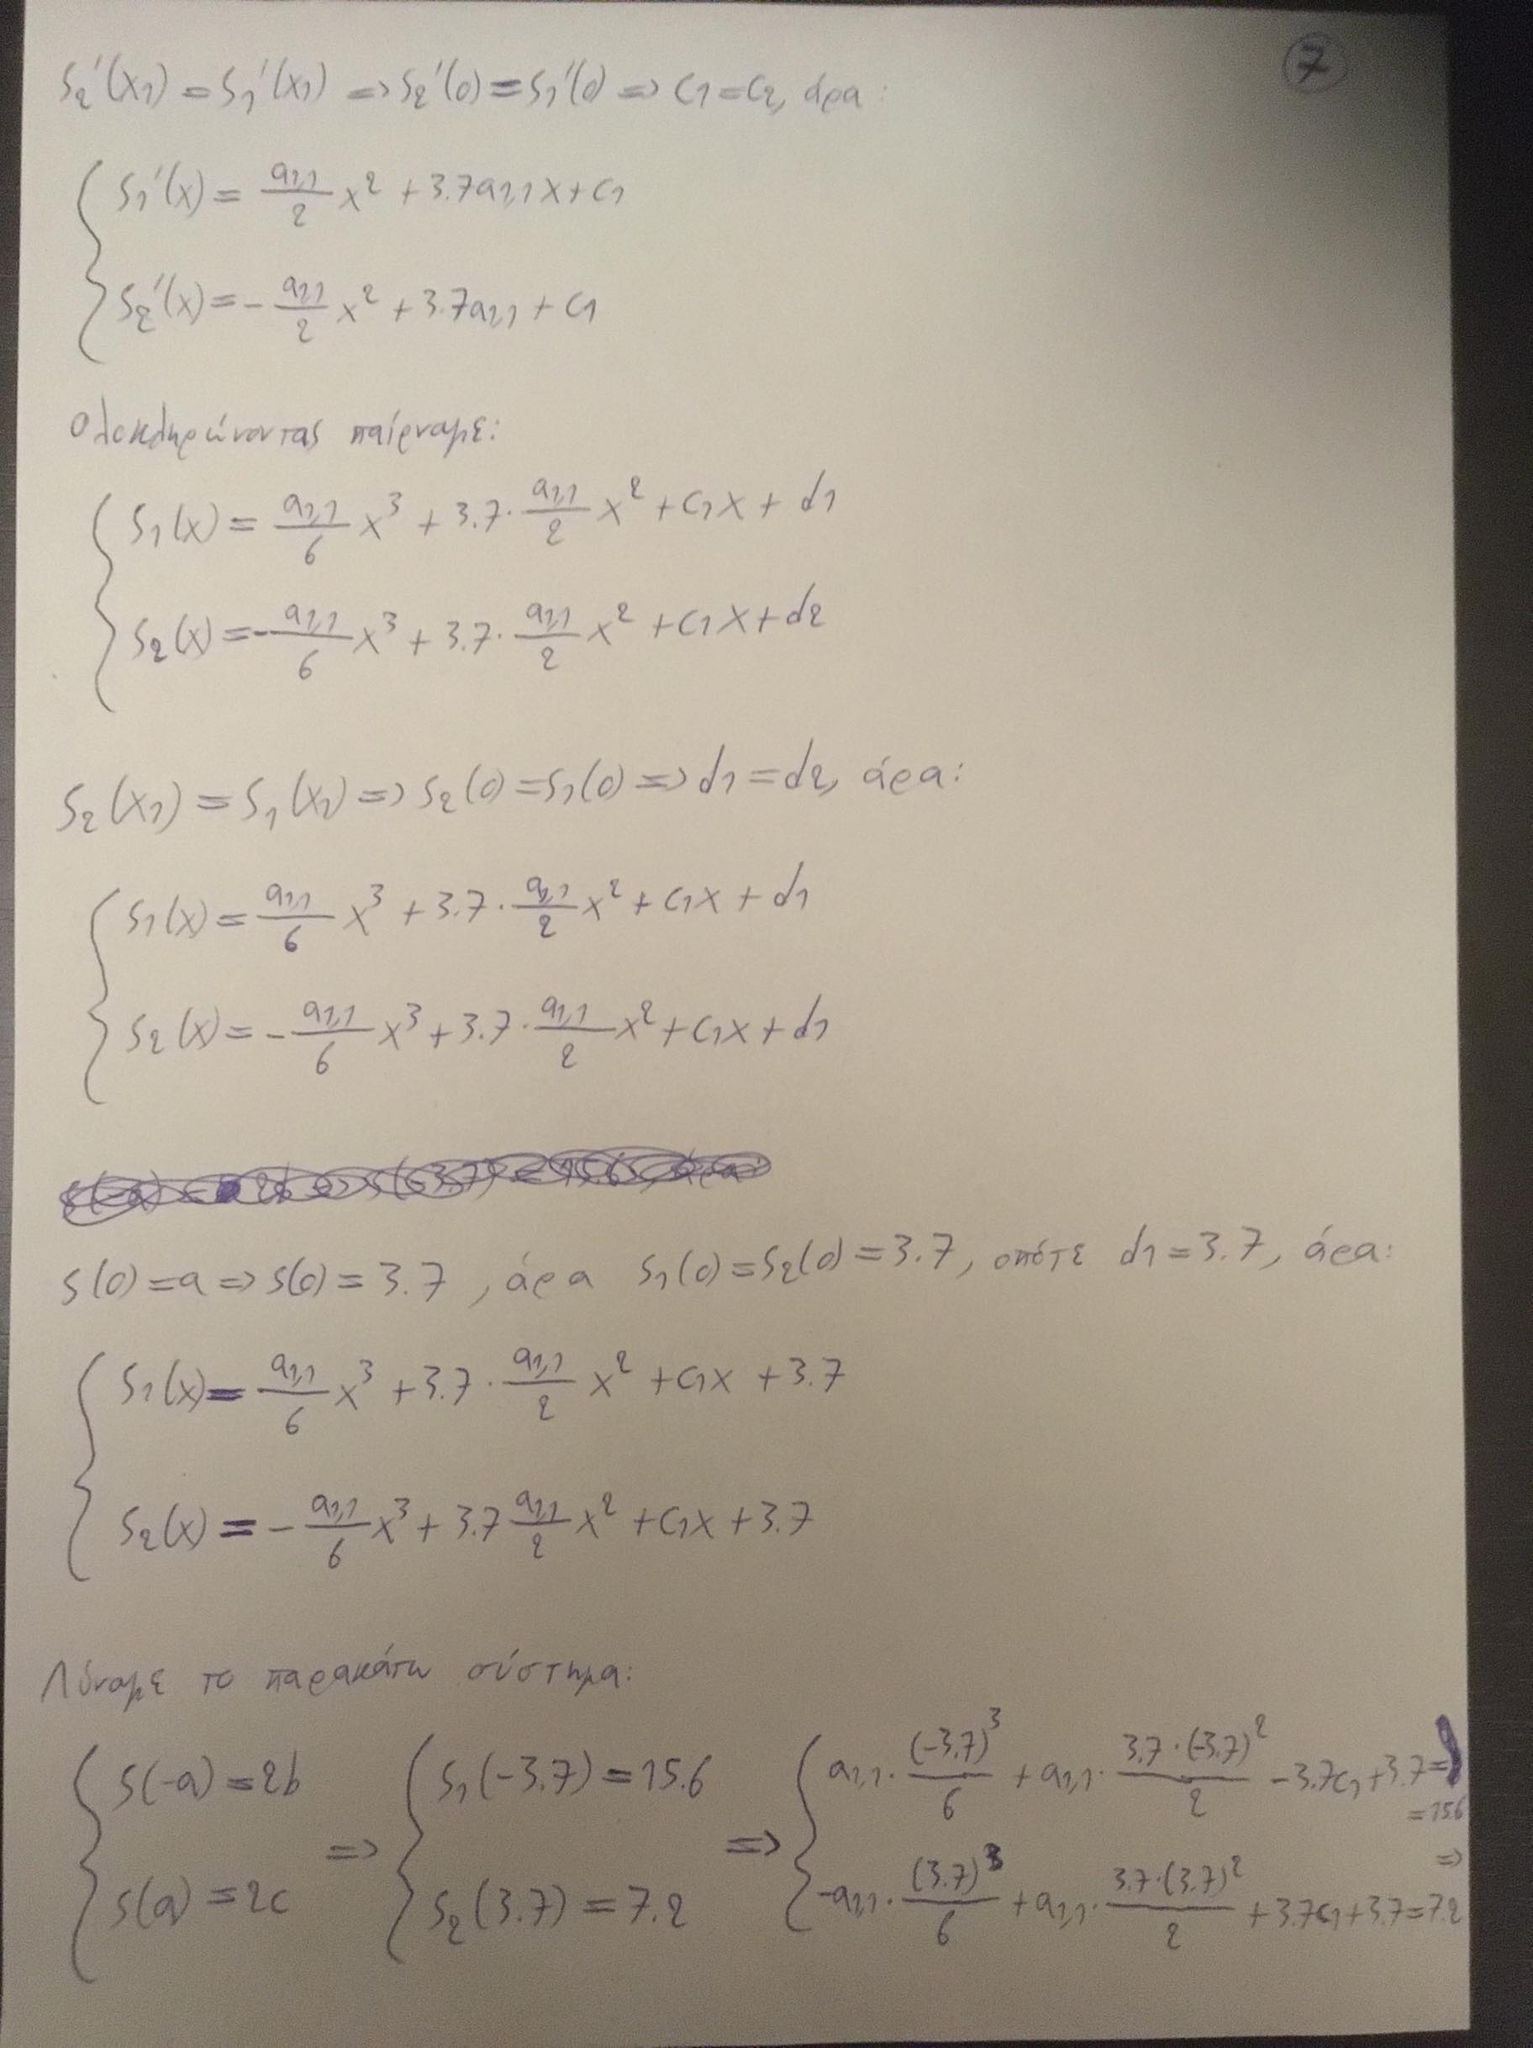 7
S₂'(x₁) = S₁'(x₁) => S₂'(0) = S₁'(0) => C₁ = C₂, άρα:
S₁'(x) = a₁,₁/2 x² + 3.7a₁,₁x + C₁
S₂'(x) = - a₁,₁/2 x² + 3.7a₁,₁ + C₁
Ολοκληρώνοντας παίρναμε:
S₁(x) = a₁,₁/6 x³ + 3.7 · a₁,₁/2 x² + C₁x + d₁
S₂(x) = - a₁,₁/6 x³ + 3.7 · a₁,₁/2 x² + C₁x + d₂
S₂(x₁) = S₁(x₁) => S₂(0) = S₁(0) => d₁ = d₂, άρα:
S₁(x) = a₁,₁/6 x³ + 3.7 · a₁,₁/2 x² + C₁x + d₁
S₂(x) = - a₁,₁/6 x³ + 3.7 · a₁,₁/2 x² + C₁x + d₁
S(0) = a => S(0) = 3.7, άρα S₁(0) = S₂(0) = 3.7, οπότε d₁ = 3.7, άρα:
S₁(x) = a₁,₁/6 x³ + 3.7 · a₁,₁/2 x² + C₁x + 3.7
S₂(x) = - a₁,₁/6 x³ + 3.7 a₁,₁/2 x² + C₁x + 3.7
Λύναμε το παρακάτω σύστημα:
S(-a) = 2b => S₁(-3.7) = 15.6 => a₁,₁ · (-3.7)³/6 + a₁,₁ · 3.7·(-3.7)²/2 - 3.7C₁ + 3.7 = = 15.6 =>
S(a) = 2c S₂(3.7) = 7.2 -a₁,₁ · (3.7)³/6 + a₁,₁ · 3.7·(3.7)²/2 + 3.7C₁ + 3.7 = 7.2